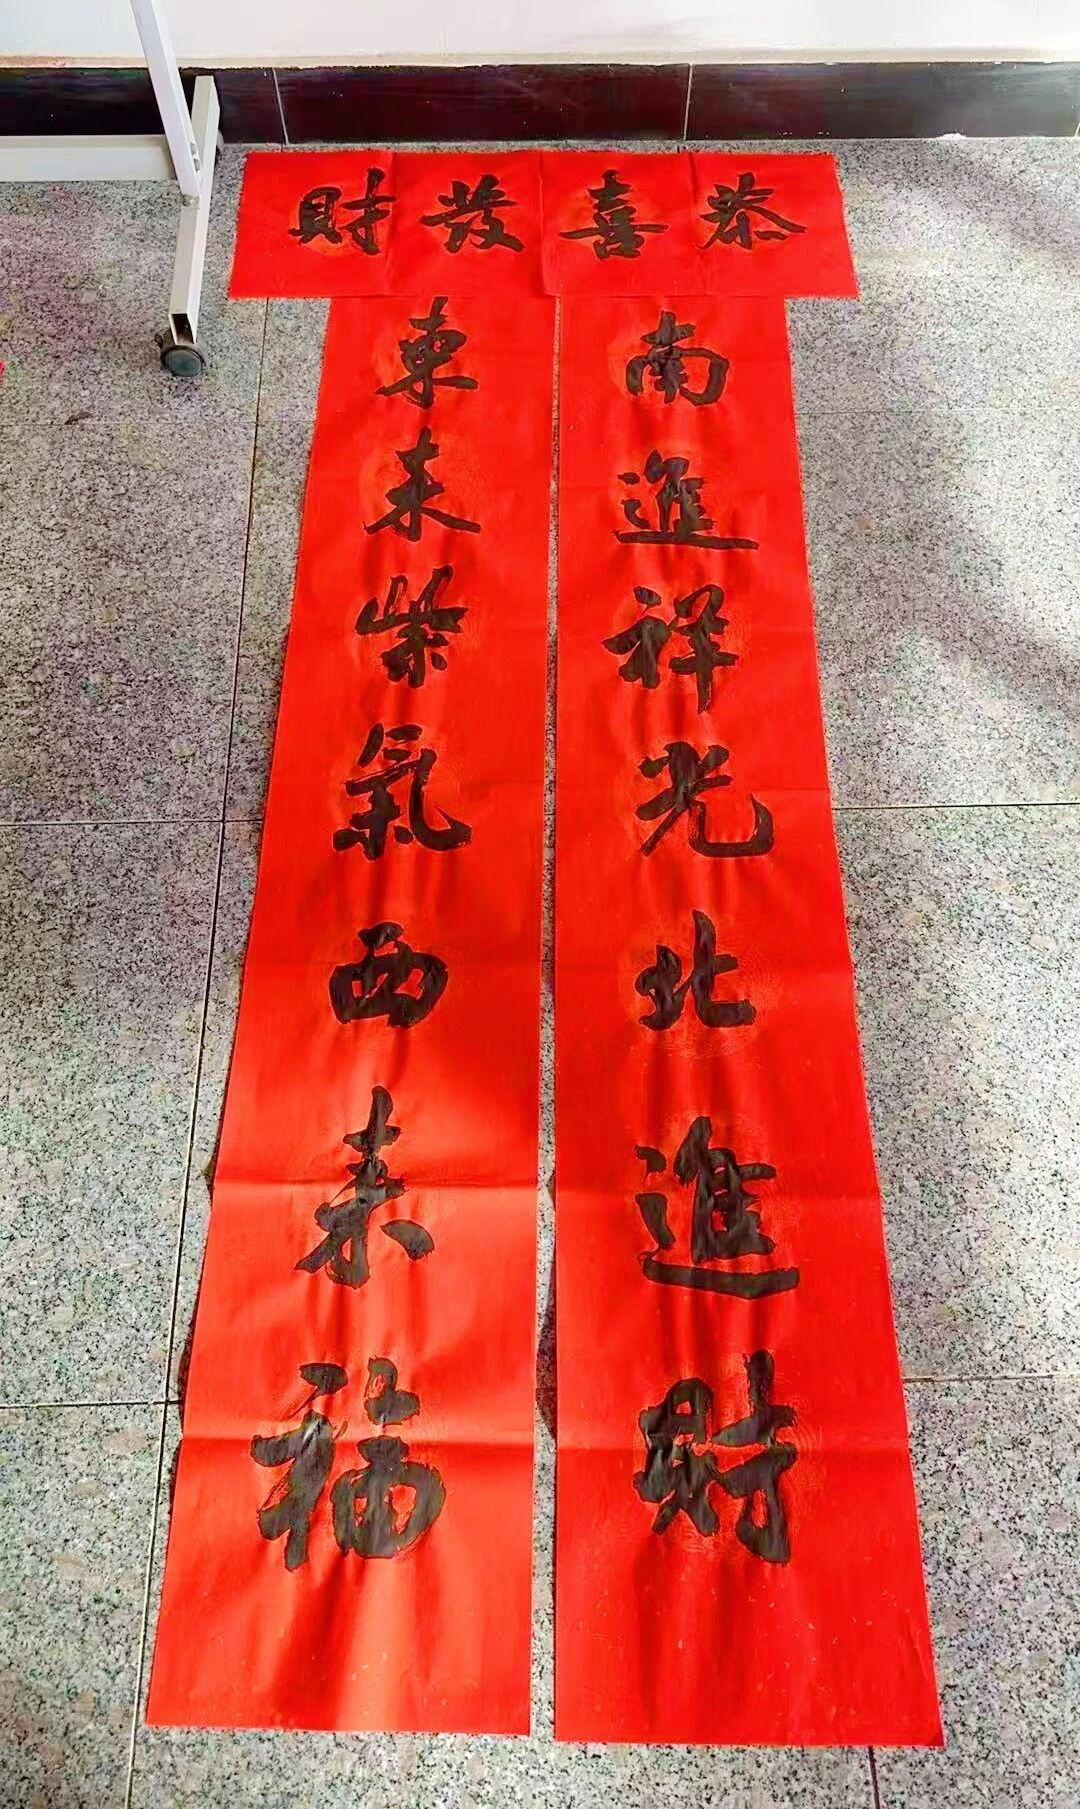 恭喜發財
南進祥光北進財
東来紫氣西来福